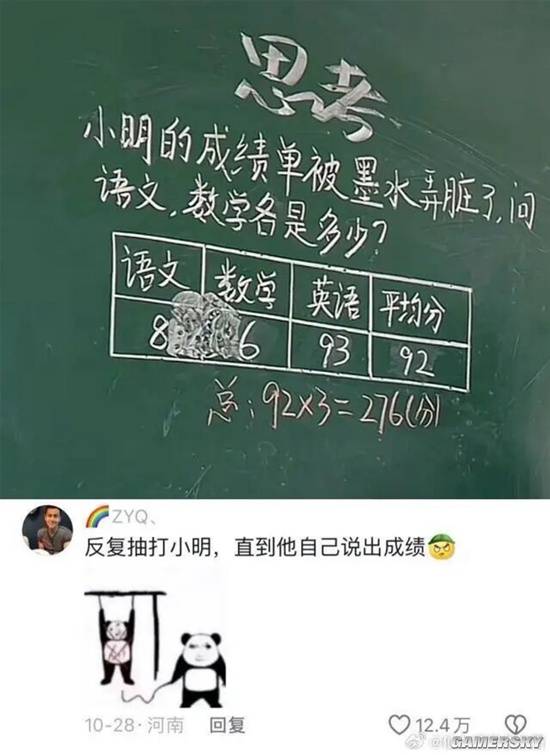 思考
小明的成绩单被墨水弄脏了,问
语文,数学各是多少?
语文 数学 英语 平均分
8 6 93 92
总:92×3=276(分)
ZYQ、
反复抽打小明，直到他自己说出成绩
10-28·河南 回复 12.4万
GAMERSKY